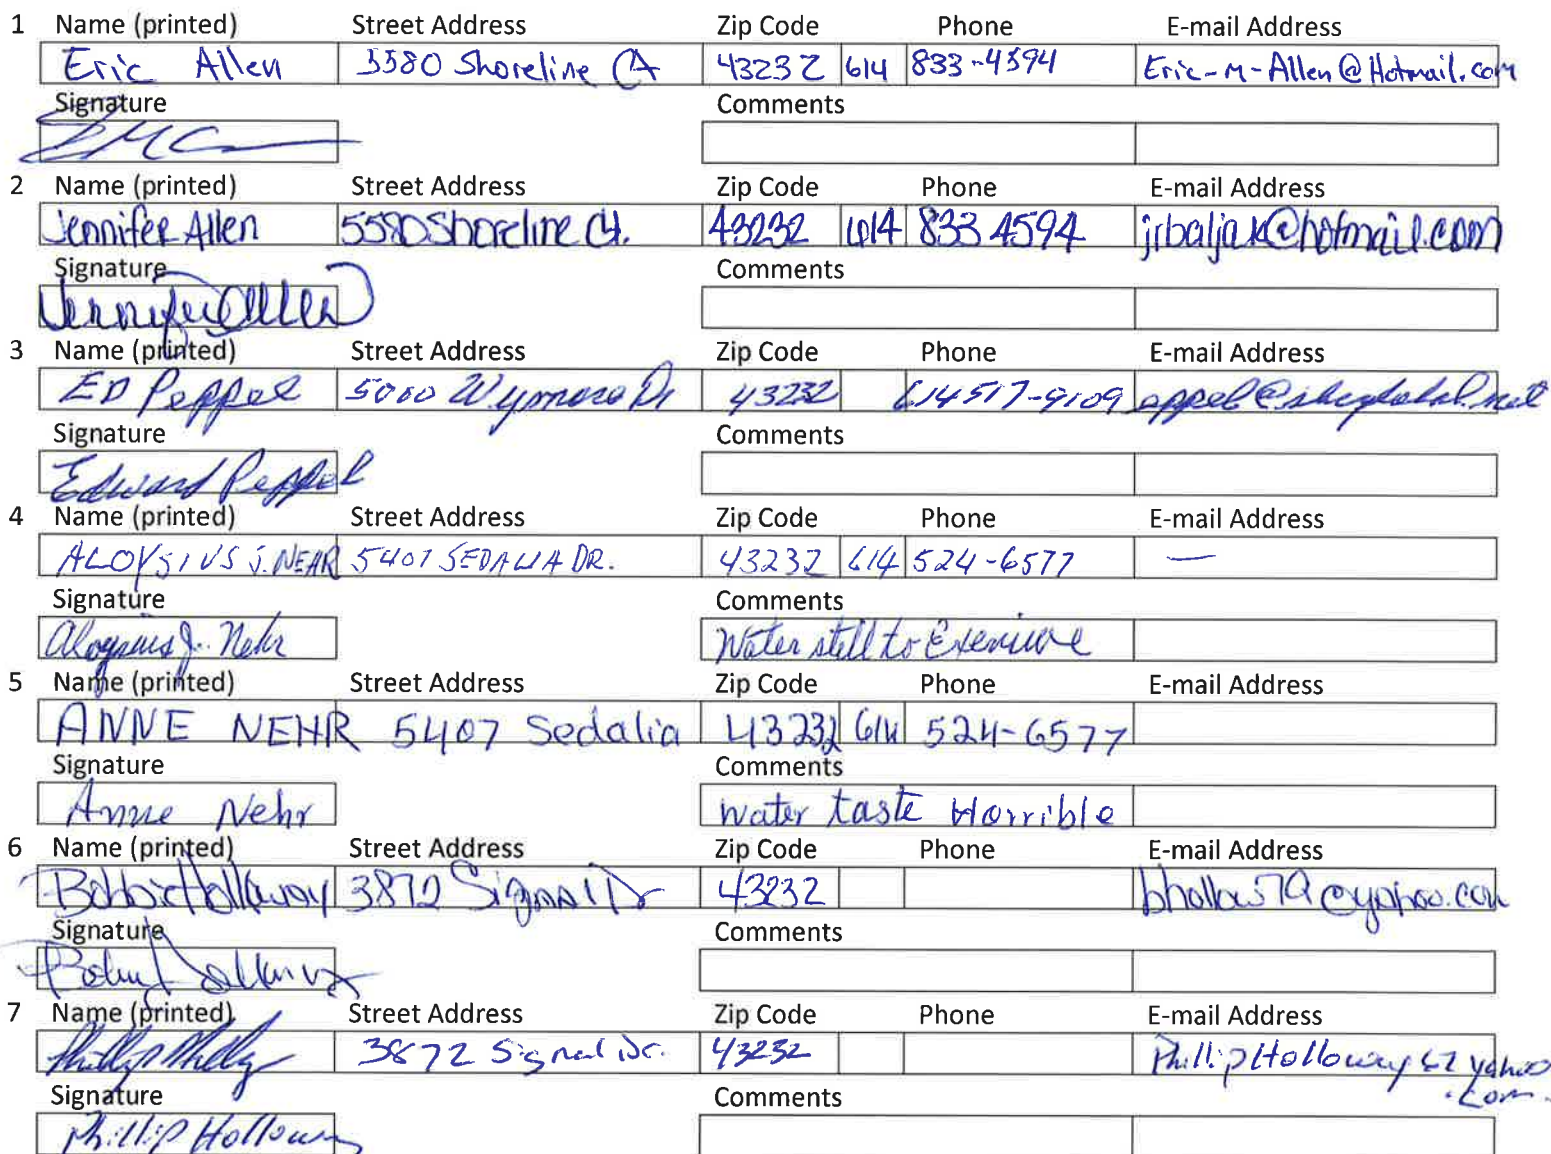 1 Name (printed) Street Address Zip Code Phone E-mail Address
Eric Allen 5580 Shoreline Ct 43232 614 833-4594 Eric-M-Allen@Hotmail.com
Signature Comments
2 Name (printed) Street Address Zip Code Phone E-mail Address
Jennifer Allen 5580 Shoreline Ct. 43232 614 833 4594 jrbaljak@hotmail.com
Signature Comments
Jennifer Allen
3 Name (printed) Street Address Zip Code Phone E-mail Address
ED Peppel 5060 Wymore Dr 43232 614 517-9109
Signature Comments
Edward Peppel
4 Name (printed) Street Address Zip Code Phone E-mail Address
ALOYSIUS J. NEHR 5407 SEDALIA DR. 43232 614 524-6577 —
Signature Comments
Aloysius J. Nehr Water still to
5 Name (printed) Street Address Zip Code Phone E-mail Address
ANNE NEHR 5407 Sedalia 43232 614 524-6577
Signature Comments
Anne Nehr water taste Horrible
6 Name (printed) Street Address Zip Code Phone E-mail Address
Bobbie Holloway 3872 Signal Dr 43232
Signature Comments
7 Name (printed) Street Address Zip Code Phone E-mail Address
3872 Signal Dr. 43232 PhillipHolloway62 yahoo
.com.
Signature Comments
Phillip Holloway